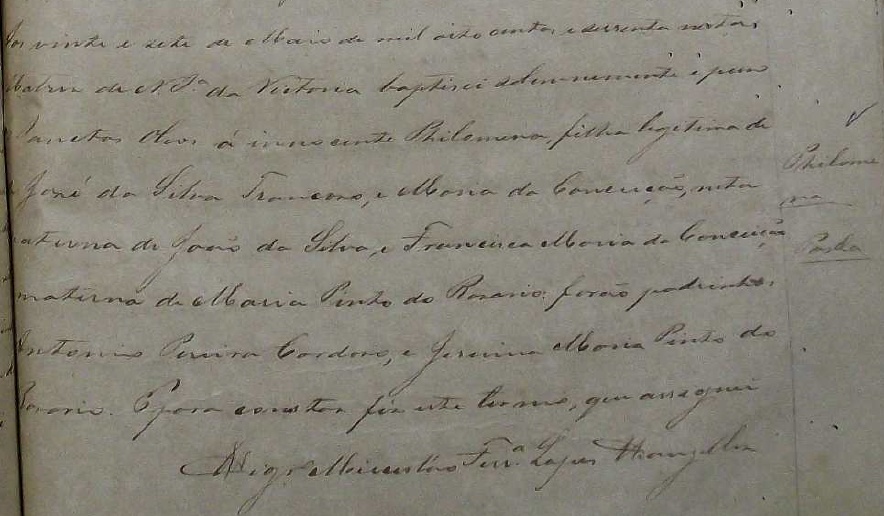 Aos vinte e sete de Maio de mil oito centos e secenta nesta
Matriz de N. Sª. da Victoria baptisei solemnemente e pus os
Sanctos Oleos á innocente Philomena, filha legitima de
José da Silva e Maria da Conceição, neta
paterna de João da Silva, e Francisca Maria da Conceição
materna de Maria Pinto do Rosario: forão padrinhos
Antonio Pereira Cardoso, e Maria Pinto do
Rosario. E para constar fiz este termo, que assignei
Vigrº Lopes
Philome
na
Parda